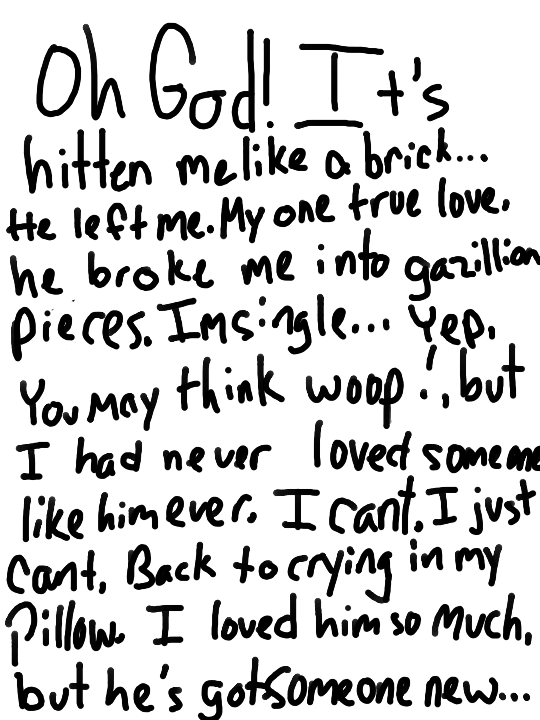 Oh God! It's
hitten me like a brick...
He left me. My one true love,
he broke me into gazillion
pieces. Im single... Yep.
You may think woop!, but
I had never loved someone
like him ever. I cant. I just
cant. Back to crying in my
pillow. I loved him so much,
but he's got someone new...